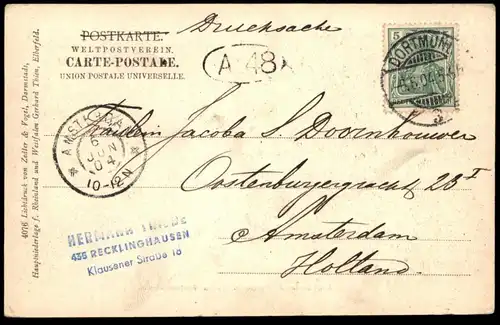 Drucksache
POSTKARTE.
WELTPOSTVEREIN.
CARTE-POSTALE.
UNION POSTALE UNIVERSELLE.
A 48
5
DORTMUND
AMST
6
JUN
04
10-12N
Fräulein Jacoba S. Doornhouwer
Oostenburgergracht 28 I
Amsterdam
Holland.
HERMANN
435 RECKLINGHAUSEN
Klausener Straße 18
4016 Lichtdruck von Zedler & Vogel, Darmstadt.
Hauptniederlage f. Rheinland und Westfalen Gerhard Thien, Elberfeld.